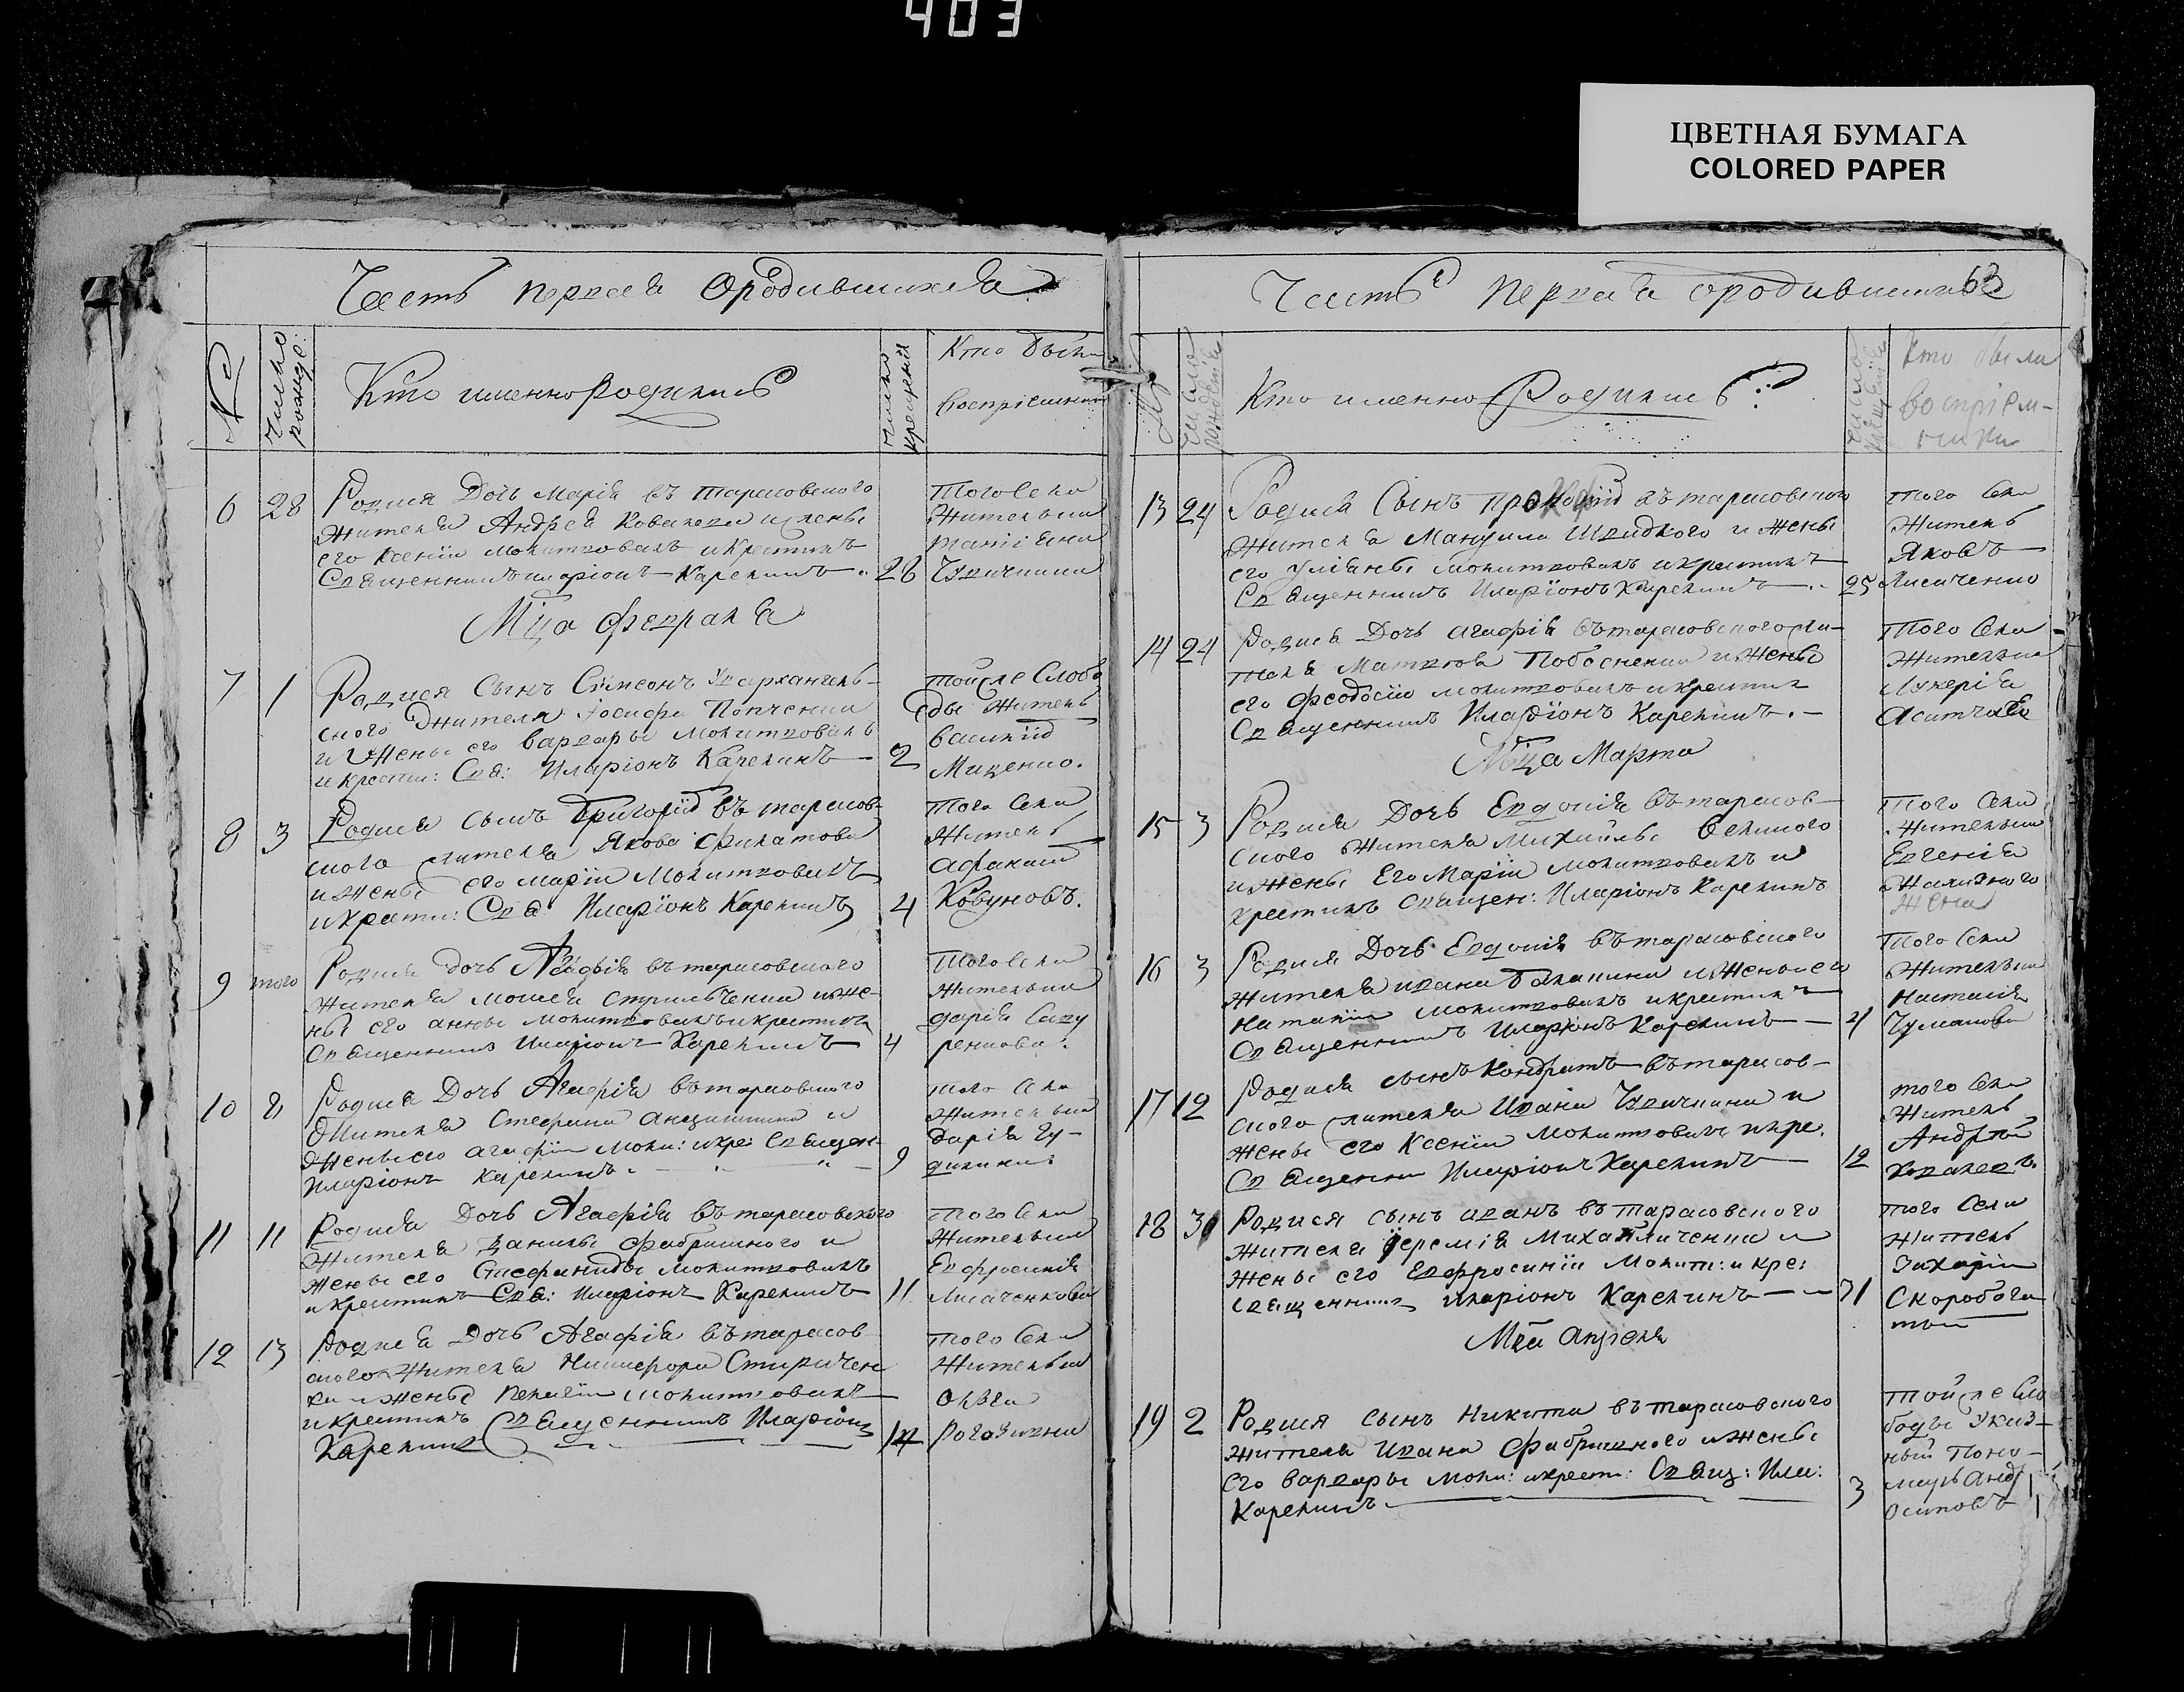 403
ЦВЕТНАЯ БУМАГА
COLORED PAPER
Часть первая о родившихся
№
число рожде:
Кто именно родились
число крещенія
Кто были
воспріемники
6 28
Родися Дочь Марія въ тарасовского
жителя Андрея Ковалева и жены
его Ксеніи молитвовалъ и крестилъ
Священникъ Иларіонъ Карелинъ 28
Того села
жителька
татіана
Мца февраля
7 1
Родися Сынъ Сѵмеонъ
ского жителя Іосифа
и жены его варвары молитвовалъ
и крести: Свя: Иларіонъ Карелинъ 2
тойже Слобо
ды житель
василій
Миценко.
8 3
Родися сынъ Григорій въ тарасов
ского жителя Якова Филатова
и жены его маріи молитвовалъ
и крести: Свя Иларіонъ Карелинъ 4
Того села
житель
афанасій
Ковуновъ.
9 того
Родися дочь Агафія въ тарасовского
жителя моисея и же-
ны его анны молитвовалъ и крестилъ
Священникъ Иларіонъ Карелинъ 4
Того села
жителька
дарія
10 8
Родися Дочь Агафія въ тарасовского
жителя Стефана и
жены его агафіи моли: и кре: Священ
Иларіонъ Карелинъ 9
того села
жителька
дарія Гу-
11 11
Родися Дочь Агафія въ тарасовского
жителя данилы Фабришного и
жены его Стефаниды молитвовалъ
и крестилъ Свя: Иларіонъ Карелинъ 11
Того села
жителька
Евфросинія
Лисаченкова
12 13
Родися Дочь Агафія въ тарасов
ского жителя Никифора Стиричен
ка и жены пелагіи молитвовалъ
и крестилъ Священникъ Иларіонъ
Карелинъ 14
того села
жителька
Ольга
Часть первая о родившихся 63
№
число рожденія
Кто именно Родились?
число крещенія
Кто были
воспріем-
ники
13 24
Родися Сынъ въ тарасовского
жителя Мануила Швидкого и жены
его уліаны молитвовалъ и крестилъ
Священникъ Иларіонъ Карелинъ 25
того села
житель
Яковъ
Лисаченко
14 24
Родися Дочь агафія въ тарасовского жи-
теля Матвея и жены
его феодосіи молитвовалъ и крестилъ
Священникъ Иларіонъ Карелинъ.
Того села
жителька
Лукерія
Мца Марта
15 3
Родися Дочь Евдокія въ тарасов-
ского жителя Михайлы
и жены его Маріи молитвовалъ и
крестилъ Священ: Иларіонъ Карелинъ
того села
жителька
Евгенія
жена
16 3
Родися Дочь Евдокія въ тарасовского
жителя ивана и жены его
Наталіи молитвовалъ и крестилъ
Священникъ Иларіонъ Карелинъ 4
Того села
жителька
Настасія
Чумакова
17 12
Родися сынъ Кондратъ въ тарасов-
ского жителя Ивана и
жены его Ксеніи молитвовалъ и кре.
Священни Иларіонъ Карелинъ 12
того села
житель
Андрей
Ковалевъ.
18 31
Родися сынъ иванъ въ тарасовского
жителя іеремія Михайличенка и
жены его Евфросиніи молит: и кре:
священникъ иларіонъ Карелинъ 31
того села
житель
Захарій
Скоробога
тый
Мца апреля
19 2
Родися сынъ Никита въ тарасовского
жителя Ивана Фабришного и жены
его варвары моли: и крести: Свящ: Ила:
Карелинъ 3
тойже сло
боды указ-
ный поно-
марь Анд
Осиповъ